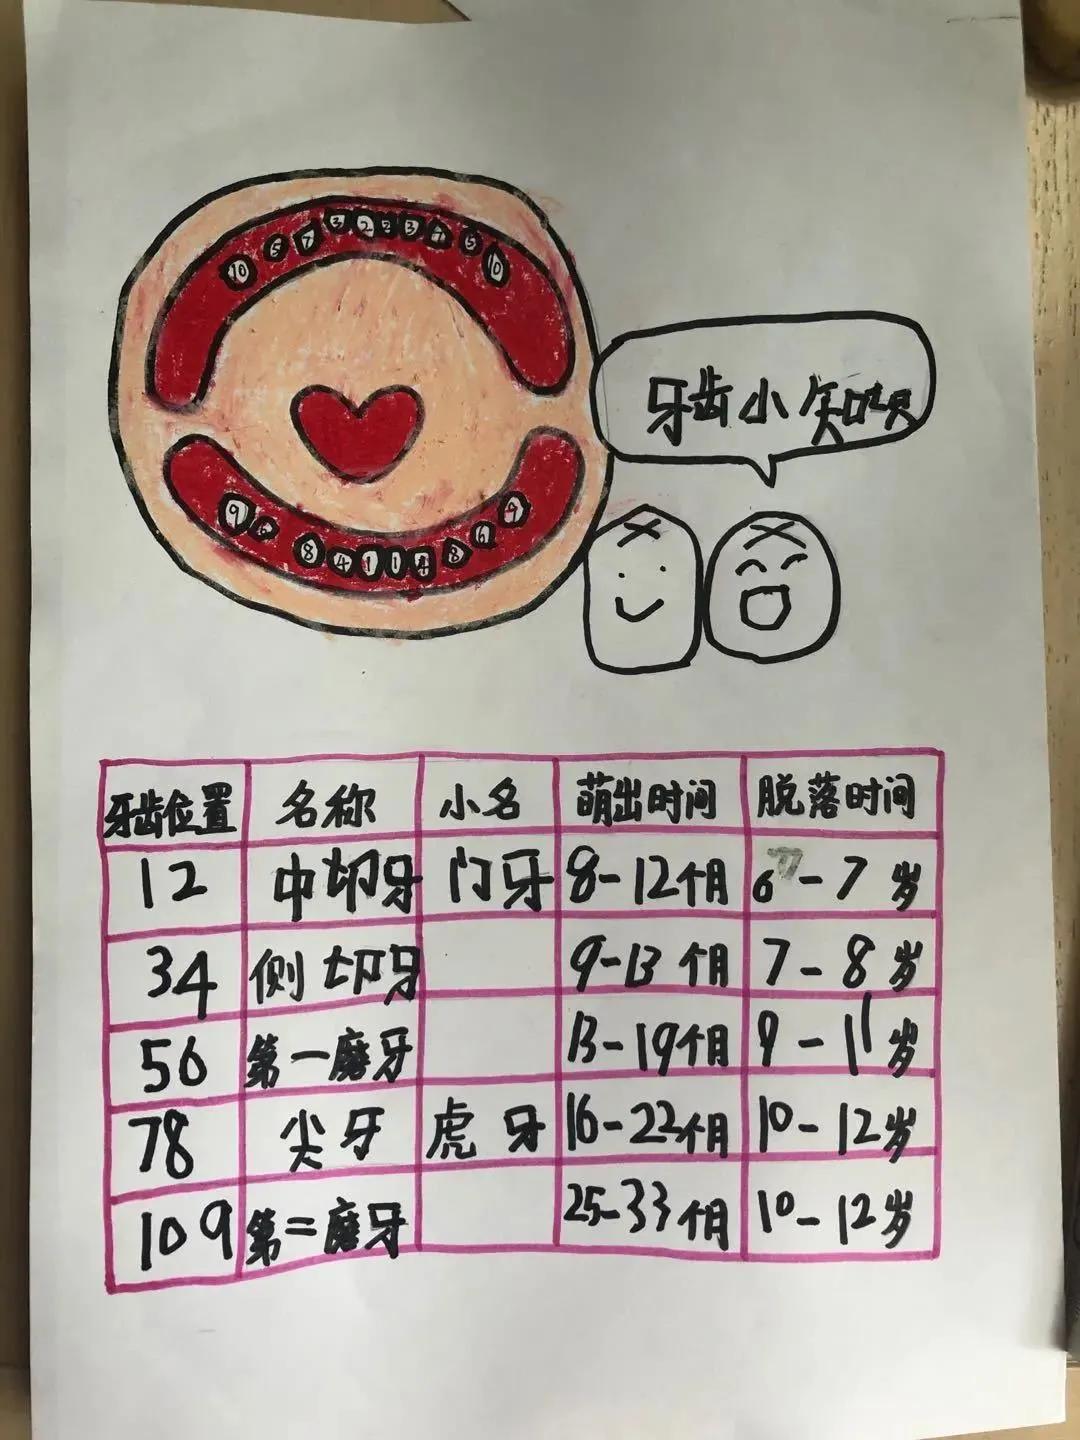 3 2 2 3
10 5 7 7 5 10
牙齿小知识
9 6 8 4 1 1 4 8 6 9
牙齿位置 名称 小名 萌出时间 脱落时间
12 中切牙 门牙 8-12个月 6-7岁
34 侧切牙 9-13个月 7-8岁
56 第一磨牙 13-19个月 9-11岁
78 尖牙 虎牙 16-22个月 10-12岁
109 第二磨牙 25-33个月 10-12岁